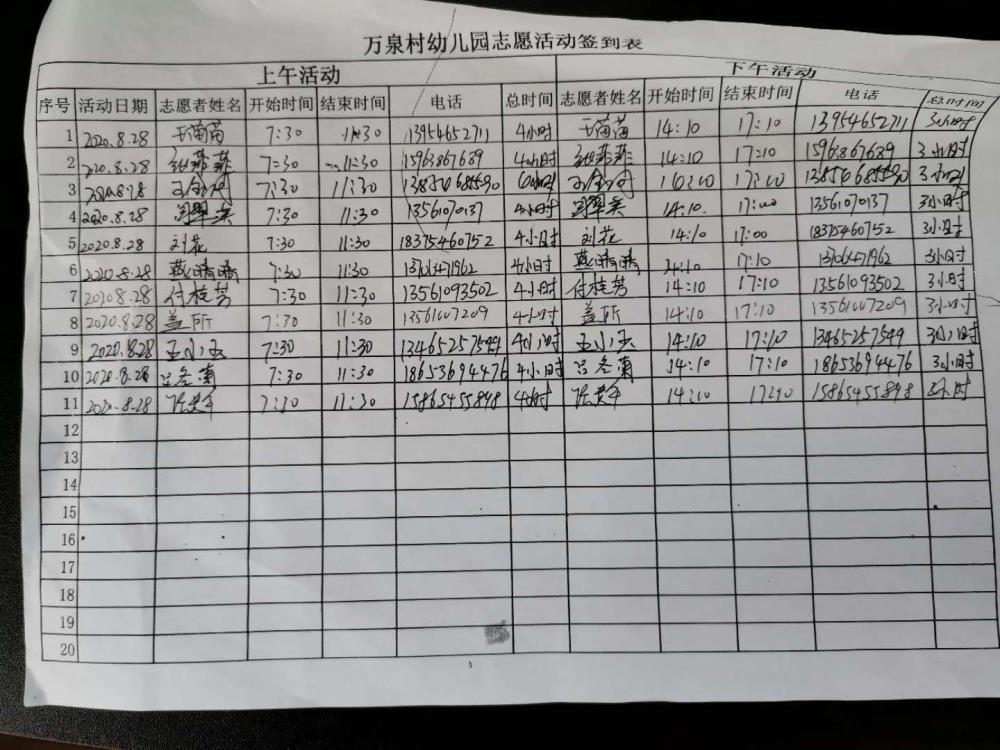 万泉村幼儿园志愿活动签到表
上午活动 下午活动
序号 活动日期 志愿者姓名 开始时间 结束时间 电话 总时间 志愿者姓名 开始时间 结束时间 电话 总时间
1 2020.8.28 于苗苗 7:30 11:30 13954652711 4小时 于苗苗 14:10 17:10 13954652711 3小时
2 2020.8.28 张菲菲 7:30 11:30 15963867689 4小时 张菲菲 14:10 17:10 15963867689 3小时
3 2020.8.28 7:30 11:30 17:10 3小时
4 2020.8.28 7:30 11:30 13561070137 4小时 14:10 17:00 13561070137 3小时
5 2020.8.28 刘花 7:30 11:30 18375460752 4小时 刘花 14:10 17:00 18375460752 3小时
6 2020.8.28 燕晴晴 7:30 11:30 13706471962 4小时 燕晴晴 14:10 17:10 13706471962 3小时
7 2020 8.28 付桂芳 7:30 11:30 13561093502 4小时 付桂芳 14:10 17:10 13561093502 3小时
8 2020.8.28 盖所 7:30 11:30 13561007209 4小时 盖所 14:10 17:10 13561007209 3小时
9 2020.8.28 王小玉 7:30 11:30 13465257549 4小时 王小玉 14:10 17:10 13465257549 3小时
10 2020.8.28 7:30 11:30 18653694476 4小时 14:10 17:10 18653694476 3小时
11 2020.8.28 7:30 11:30 15865455898 4小时 14:10 17:10 15865455898 3小时
12
13
14
15
16
17
18
19
20